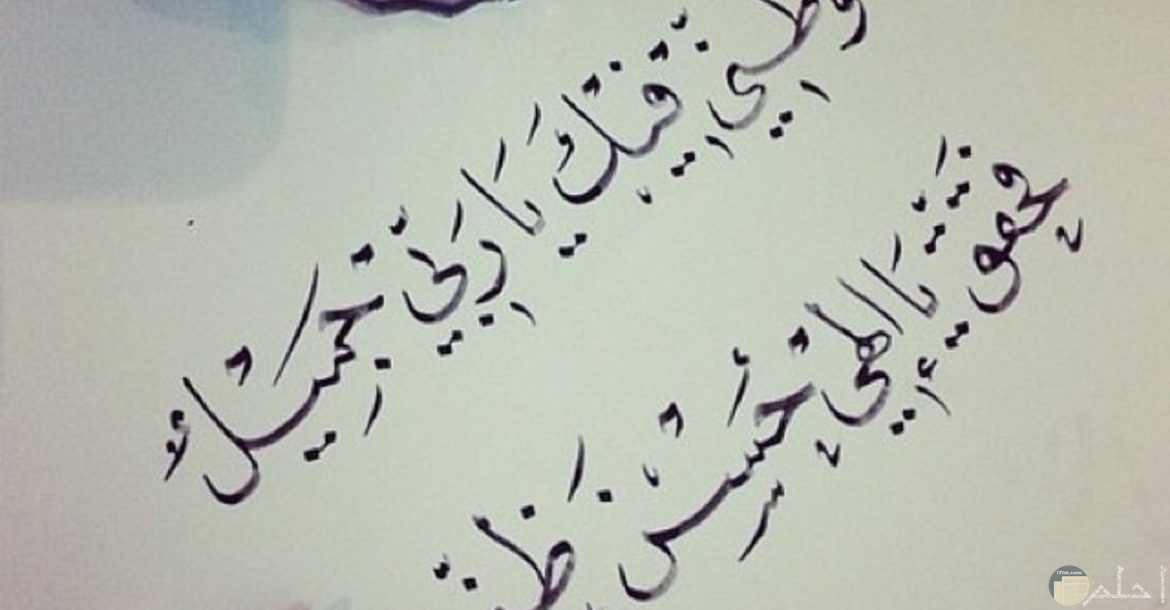 وَظَنِّي فِيكَ يَا رَبِّي جَمِيلٌ
فَحَقِّقْ يَا إِلَهِي حُسْنَ ظَنِّي
أحلم